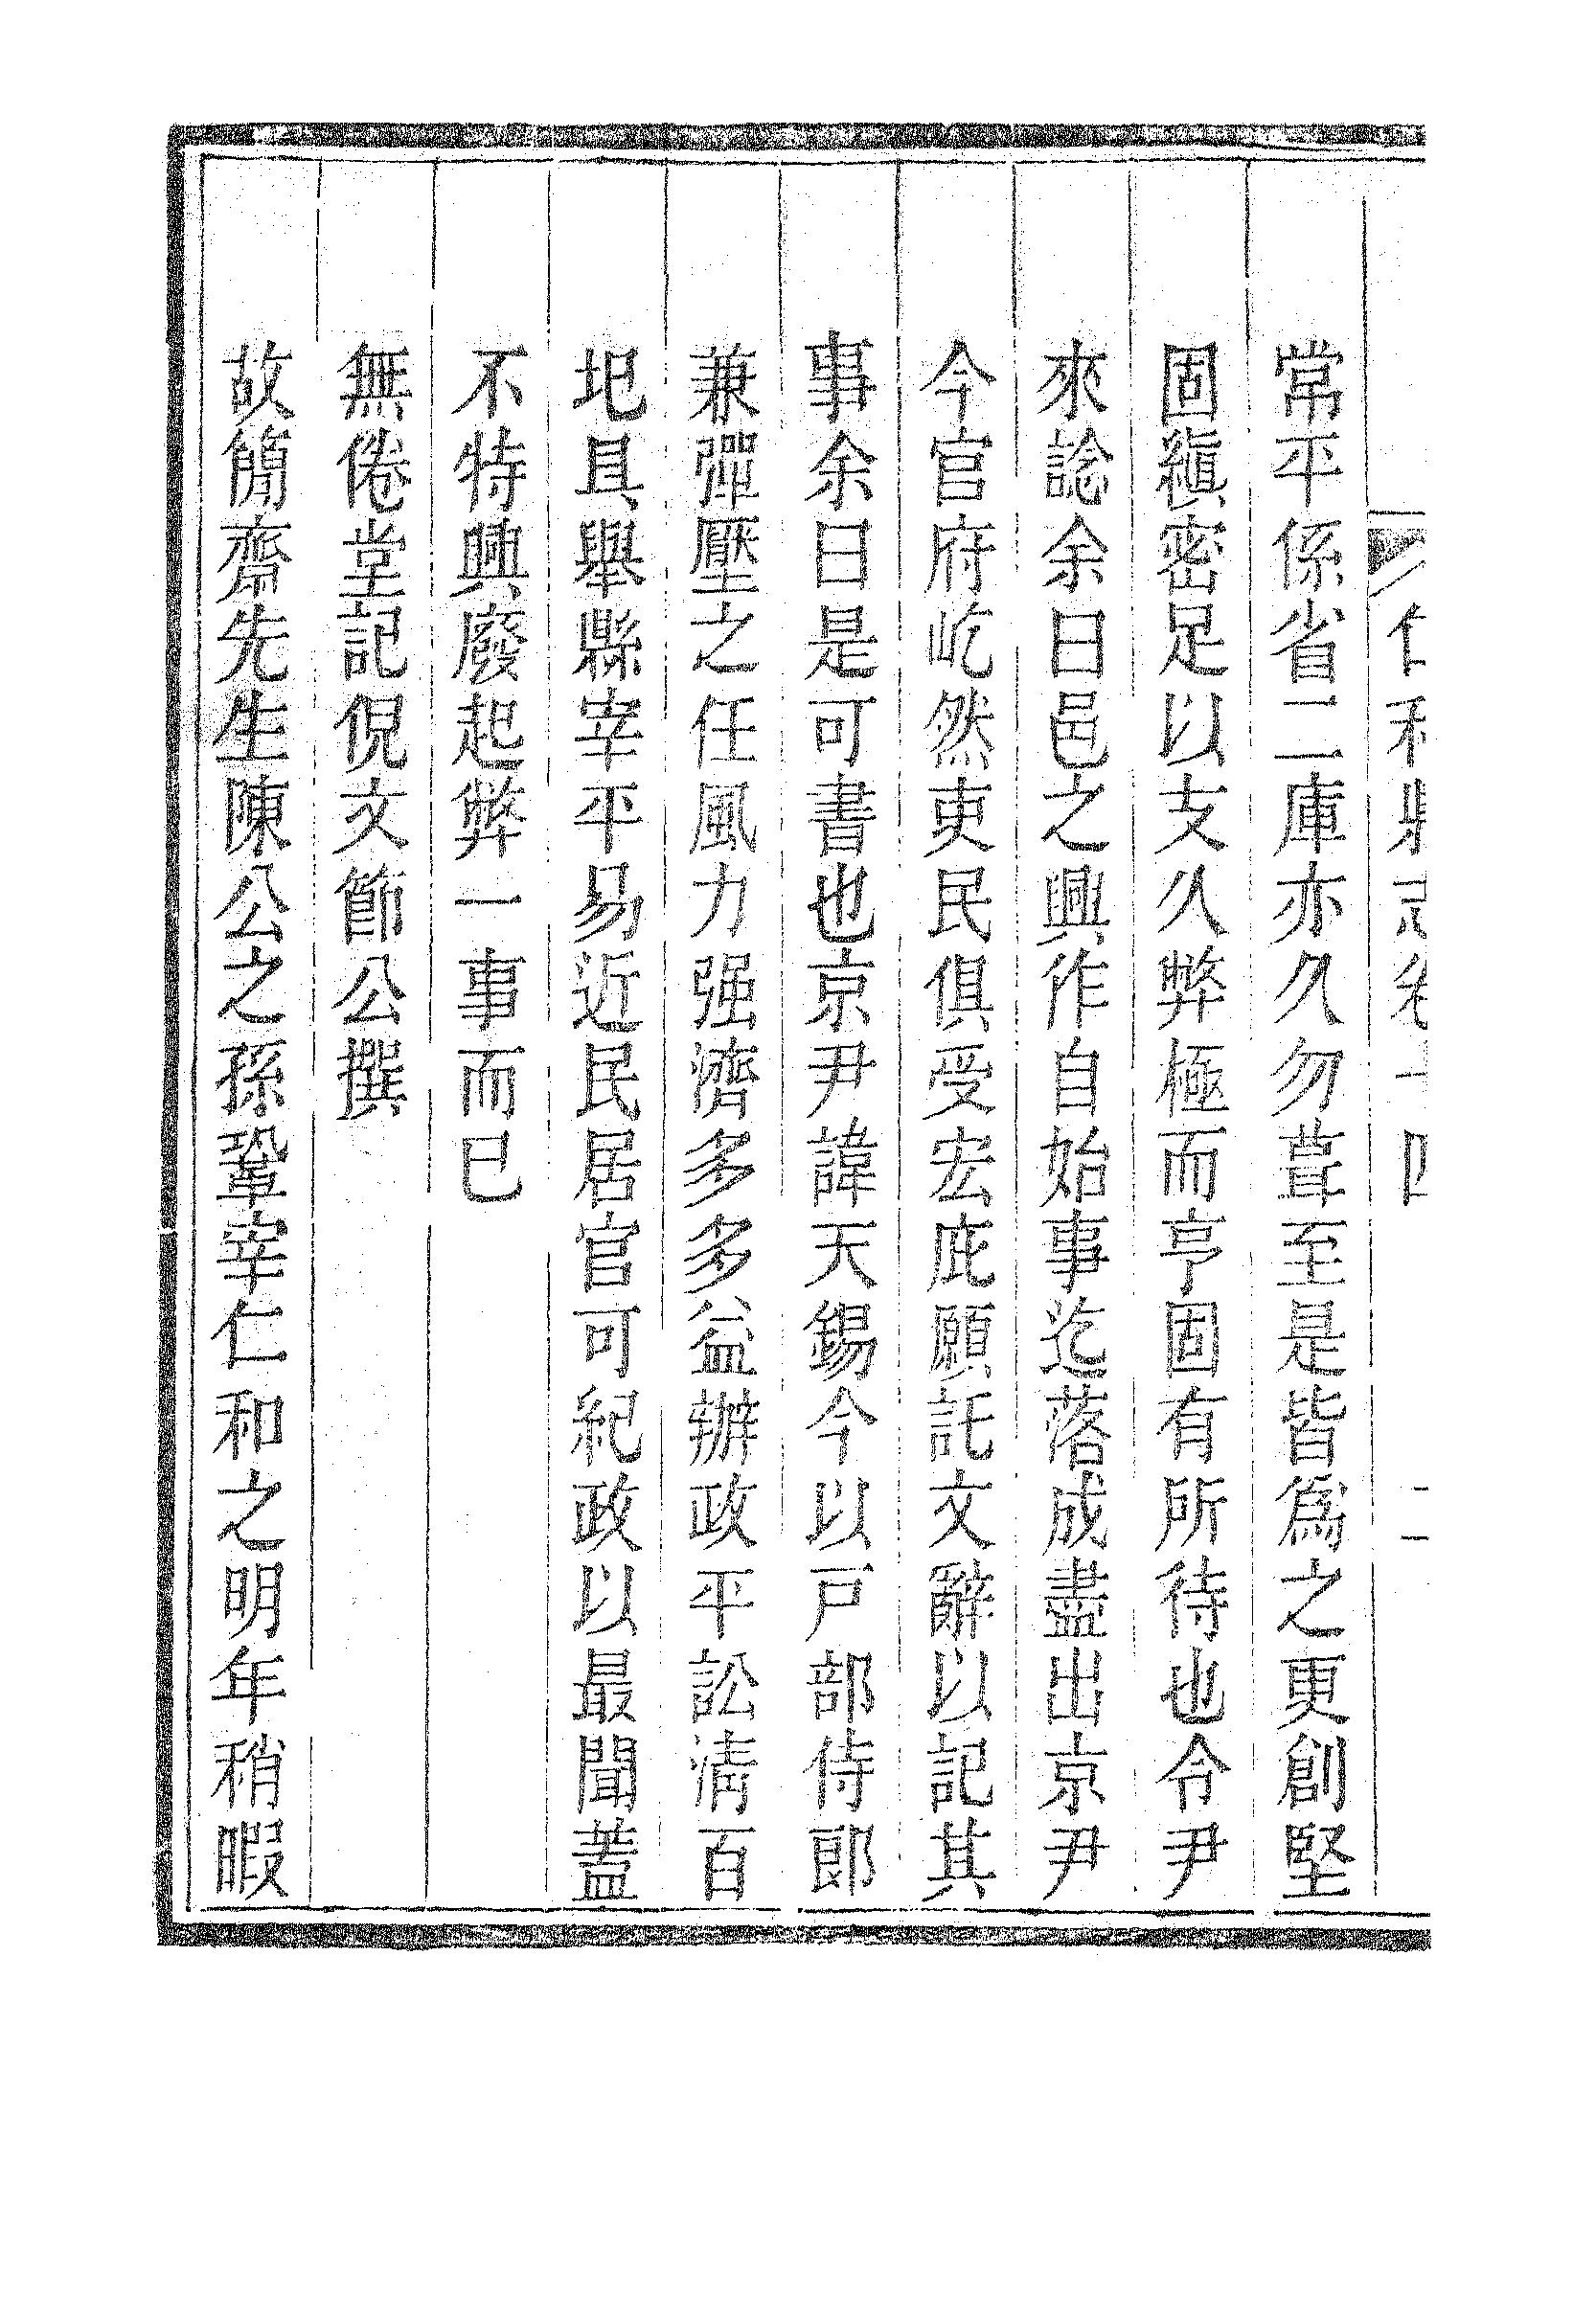 仁和縣志卷十四 二
常平係省二庫亦久勿葺至是皆爲之更創堅
固縝密足以支久弊極而亨固有所待也令尹
來諗余曰邑之興作自始事迄落成盡出京尹
今官府屹然吏民俱受宏庇願託文辭以記其
事余曰是可書也京尹諱天錫今以戸部侍郎
兼彈壓之任風力强濟多多益辦政平訟淸百
圯具舉縣宰平易近民居官可紀政以最聞蓋
不特興廢起弊一事而已
無倦堂記倪文節公撰
故簡齋先生陳公之孫鞏宰仁和之明年稍暇